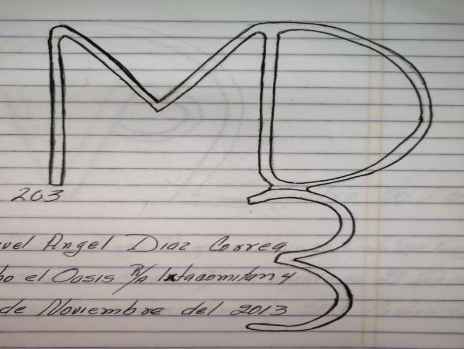 MD
3
203
uel Angel Diaz Correa
ho el Oasis M/o Ixtacomitan 4
de Noviembre del 2013